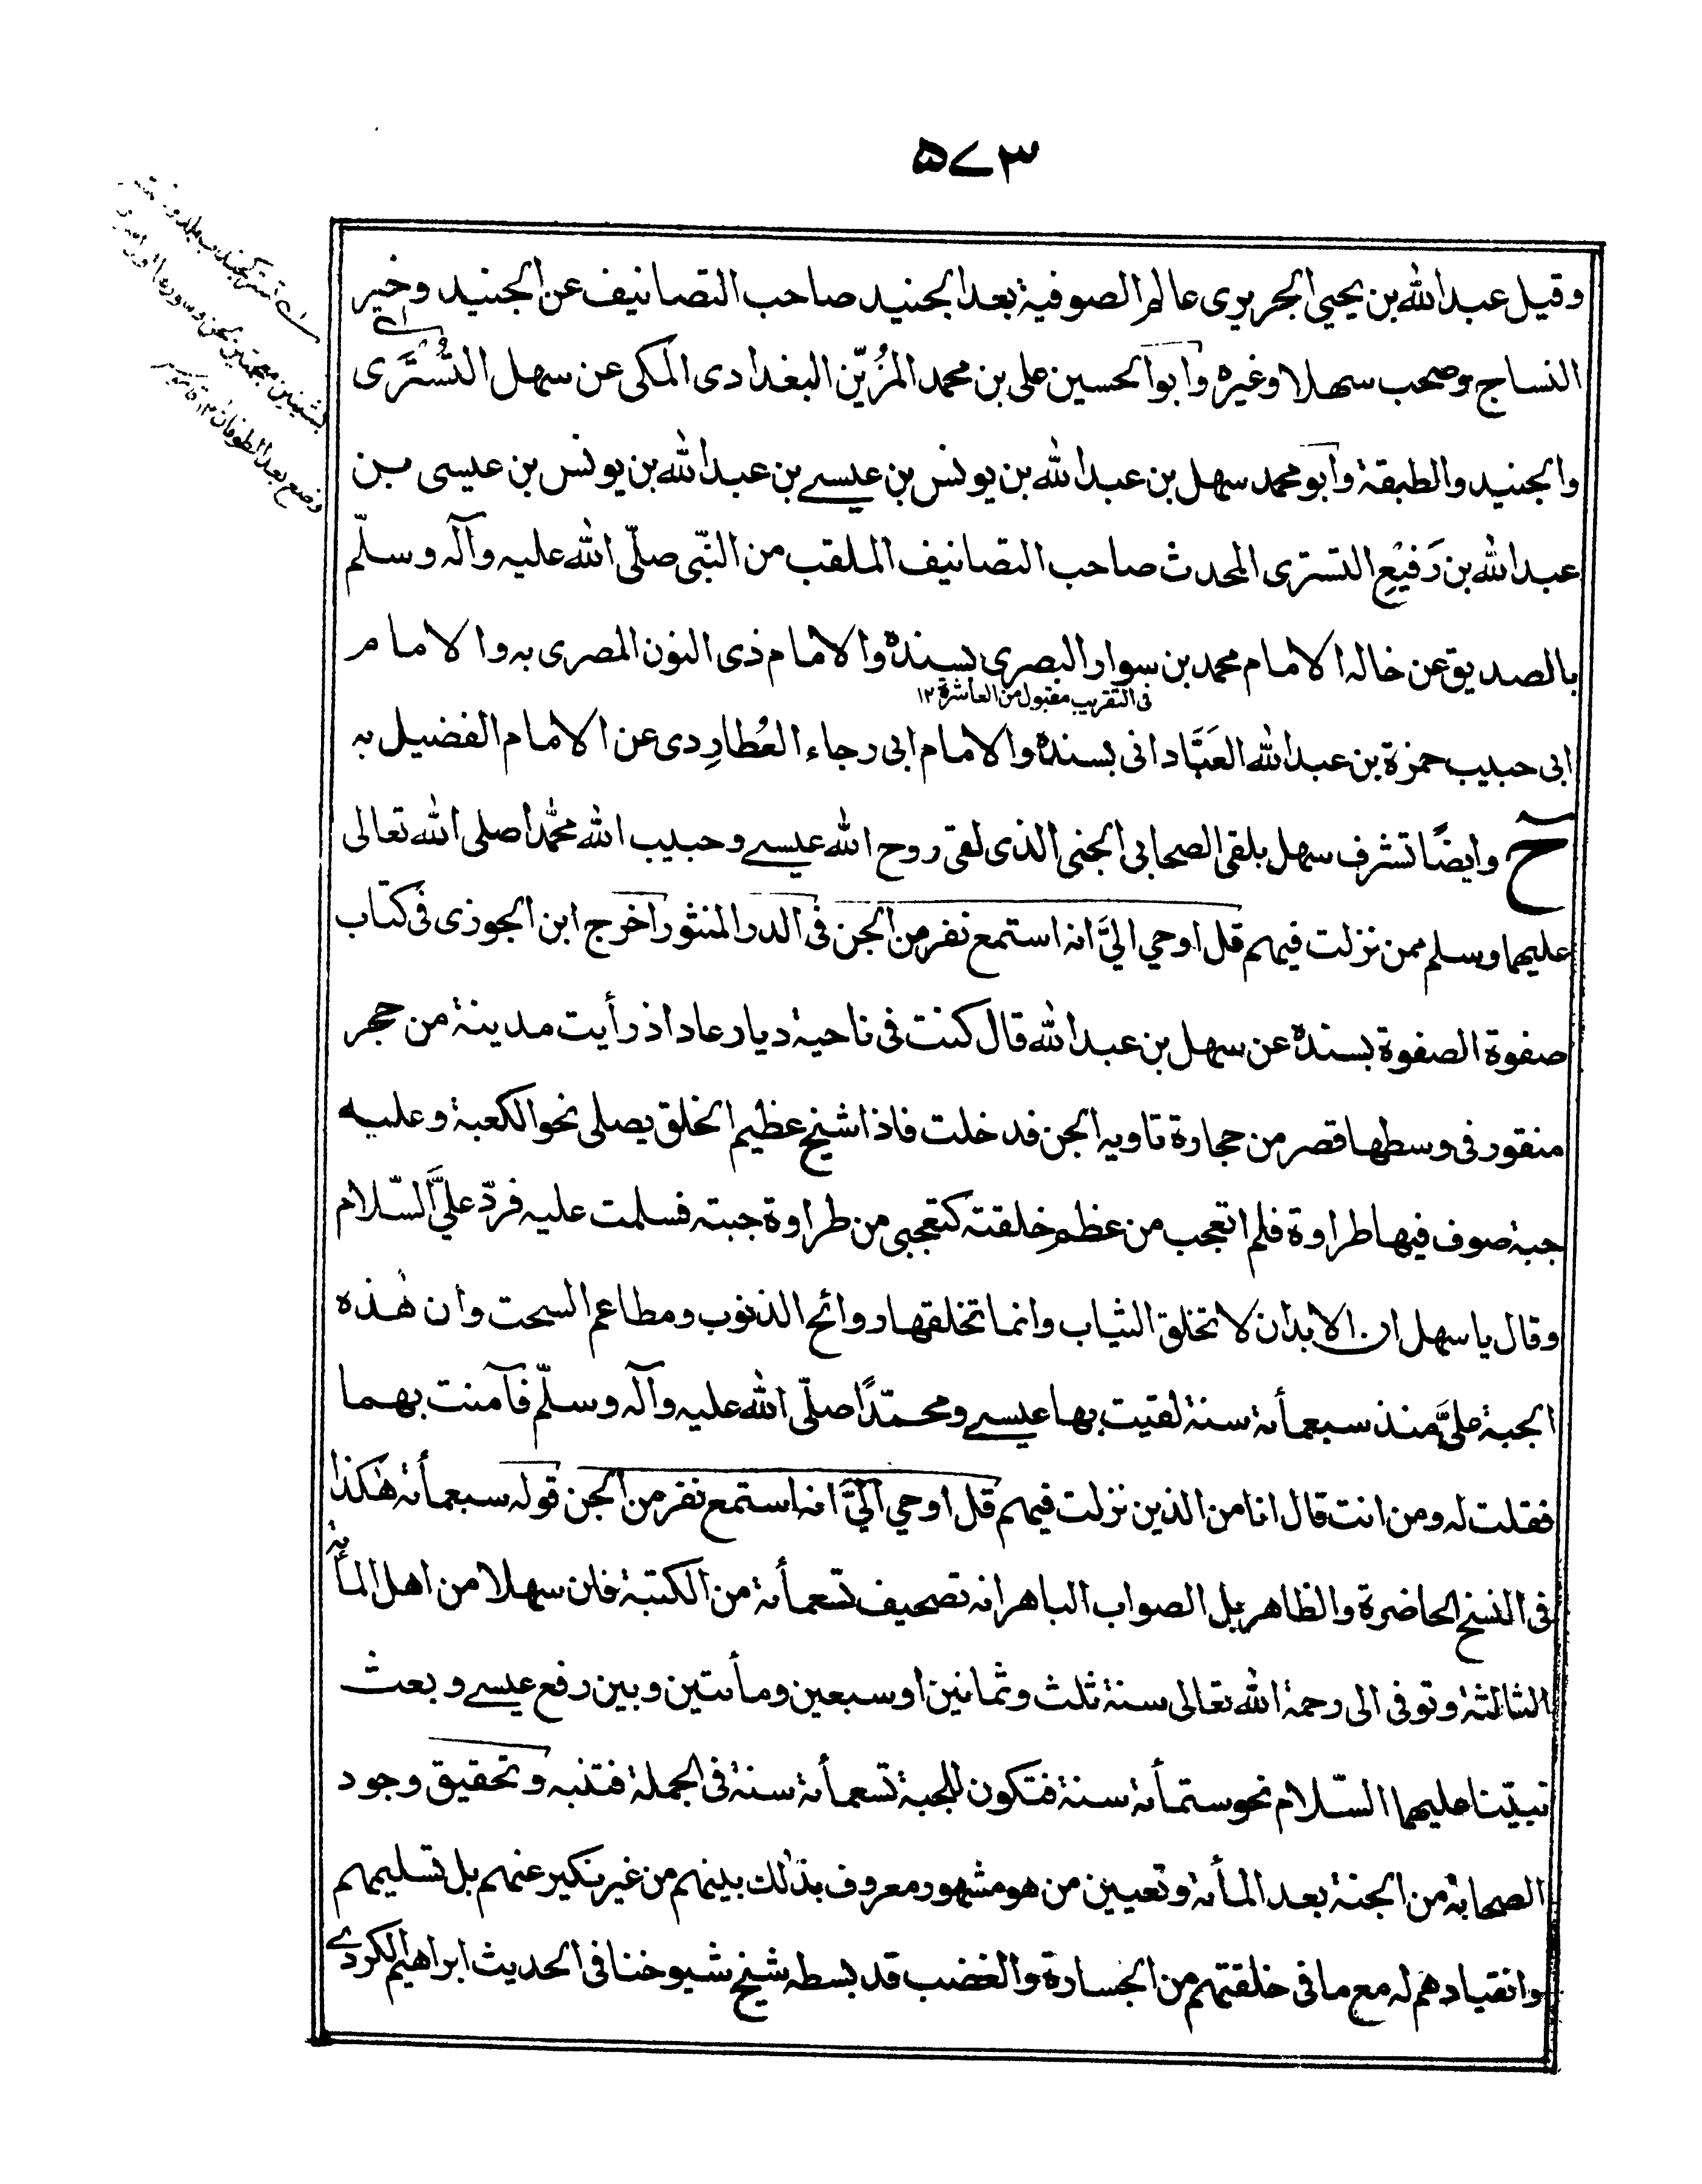 ٥٧٣
وقيل عبدالله بن يحيى الجريرى عالم الصوفية بعد الجنيد صاحب التصانيف عن الجنيد وخير
النساج وصحب سهلا وغيره وابوالحسين على بن محمد المُزيّن البغدادى المكى عن سهل التُسْتَرى
والجنيد والطبقة وابو محمد سهل بن عبدالله بن يونس بن عيسے بن عبدالله بن يونس بن عيسى بن
عبدالله بن رَفيْعِ التسترى المحدث صاحب التصانيف الملقب من النّبى صلّى الله عليه وآله وسلّم
بالصديق عن خاله الامام محمد بن سوار البصرى بسنده والامام ذى النون المصرى به والامام
فى التقريب مقبول من العاشرة ١٢
ابى حبيب حمزة بن عبدالله العَبَّادانى بسنده والامام ابى رجاء العُطارِدى عن الامام الفضيل به
ح وايضًا تشرف سهل بلقى الصحابى الجنى الذى لقى روح الله عيسے وحبيب الله محمّدا صلى الله تعالى
عليهما وسلم ممن نزلت فيهم قل اوحي اليَّ انه استمع نفر من الجن فى الدر المنثور اخرج ابن الجوزى فى كتاب
صفوة الصفوة بسنده عن سهل بن عبدالله قال كنت فى ناحية ديار عاد اذ رأيت مدينة من حجر
منقور فى وسطها قصر من حجارة تاويه الجن فدخلت فاذا شيخ عظيم الخلق يصلى نحو الكعبة وعليه
جبة صوف فيها طراوة فلم اتعجب من عظم خلقته كتعجبى من طراوة جبته فسلمت عليه فردّ عليَّ السّلام
وقال يا سهل ان الابدان لا تخلق الثياب وانما تخلقها روائح الذنوب ومطاعم السحت وان هٰذه
الجبة عليَّ منذ سبعمأة سنة لقيت بها عيسے ومحمّدًا صلّى الله عليه وآله وسلّم فآمنت بهما
فقلت له ومن انت قال انا من الذين نزلت فيهم قل اوحي اليَّ انه استمع نفر من الجن قوله سبعمأة هٰكذا
فى النسخ الحاضرة والظاهر بل الصواب الباهر انه تصحيف تسعمأة من الكتبة فان سهلا من اهل المأة
الثالثة وتوفى الى رحمة الله تعالى سنة ثلث وثمانين او سبعين ومأتين وبين رفع عيسے وبعث
نبيّنا عليهما السّلام نحو ستمأة سنة فتكون للجبة تسعمأة سنة فى الجملة فتنبه وتحقيق وجود
الصحابة من الجنة بعد المأة وتعيين من هو مشهور معروف بذٰلك بينهم من غير نكير عنهم بل تسليمهم
وانقيادهم له مع ما فى خلقتهم من الجسارة والغضب قد بسطه شيخ شيوخنا فى الحديث ابراهيم الكردے